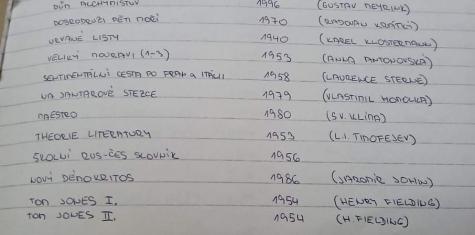 DŮM ALCHYMISTŮV 1996 (GUSTAV MEYRINK)
DOBRODRUZI PĚTI MOŘÍ 1970 (RADOVAN KRÁTKÝ)
1940 (KAREL KLOSTERMANN)
VELIKÝ MOURAVI (1-3) 1953 (ANNA ANTONOVSKÁ)
SENTIMENTÁLNÍ CESTA PO FRAN A ITÁLII 1958 (LAURENCE STERNE)
NA JANTAROVÉ STEZCE 1979 (VLASTIMIL
MAESTRO 1980 (SV. KLÍMA)
THEORIE LITERATURY 1953 (L.I. TIMOFEJEV)
ŠKOLNÍ RUS-ČES SLOVNÍK 1956
NOVÝ DÉMOKRITOS 1986 (JAROMÍR JOHN)
TOM JONES I. 1954 (HENRY FIELDING)
TOM JONES II. 1954 (H. FIELDING)